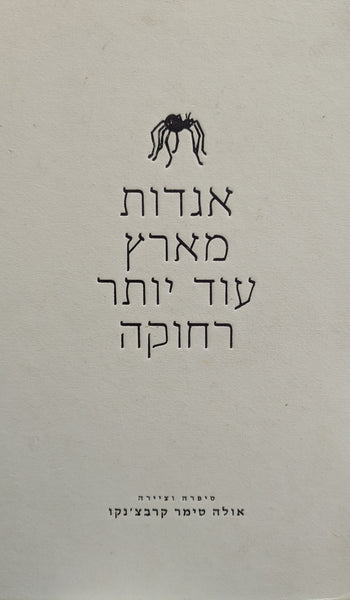 אגדות
מארץ
עוד יותר
רחוקה
סיפרה וציירה
אולה טימר קרבצ'נקו